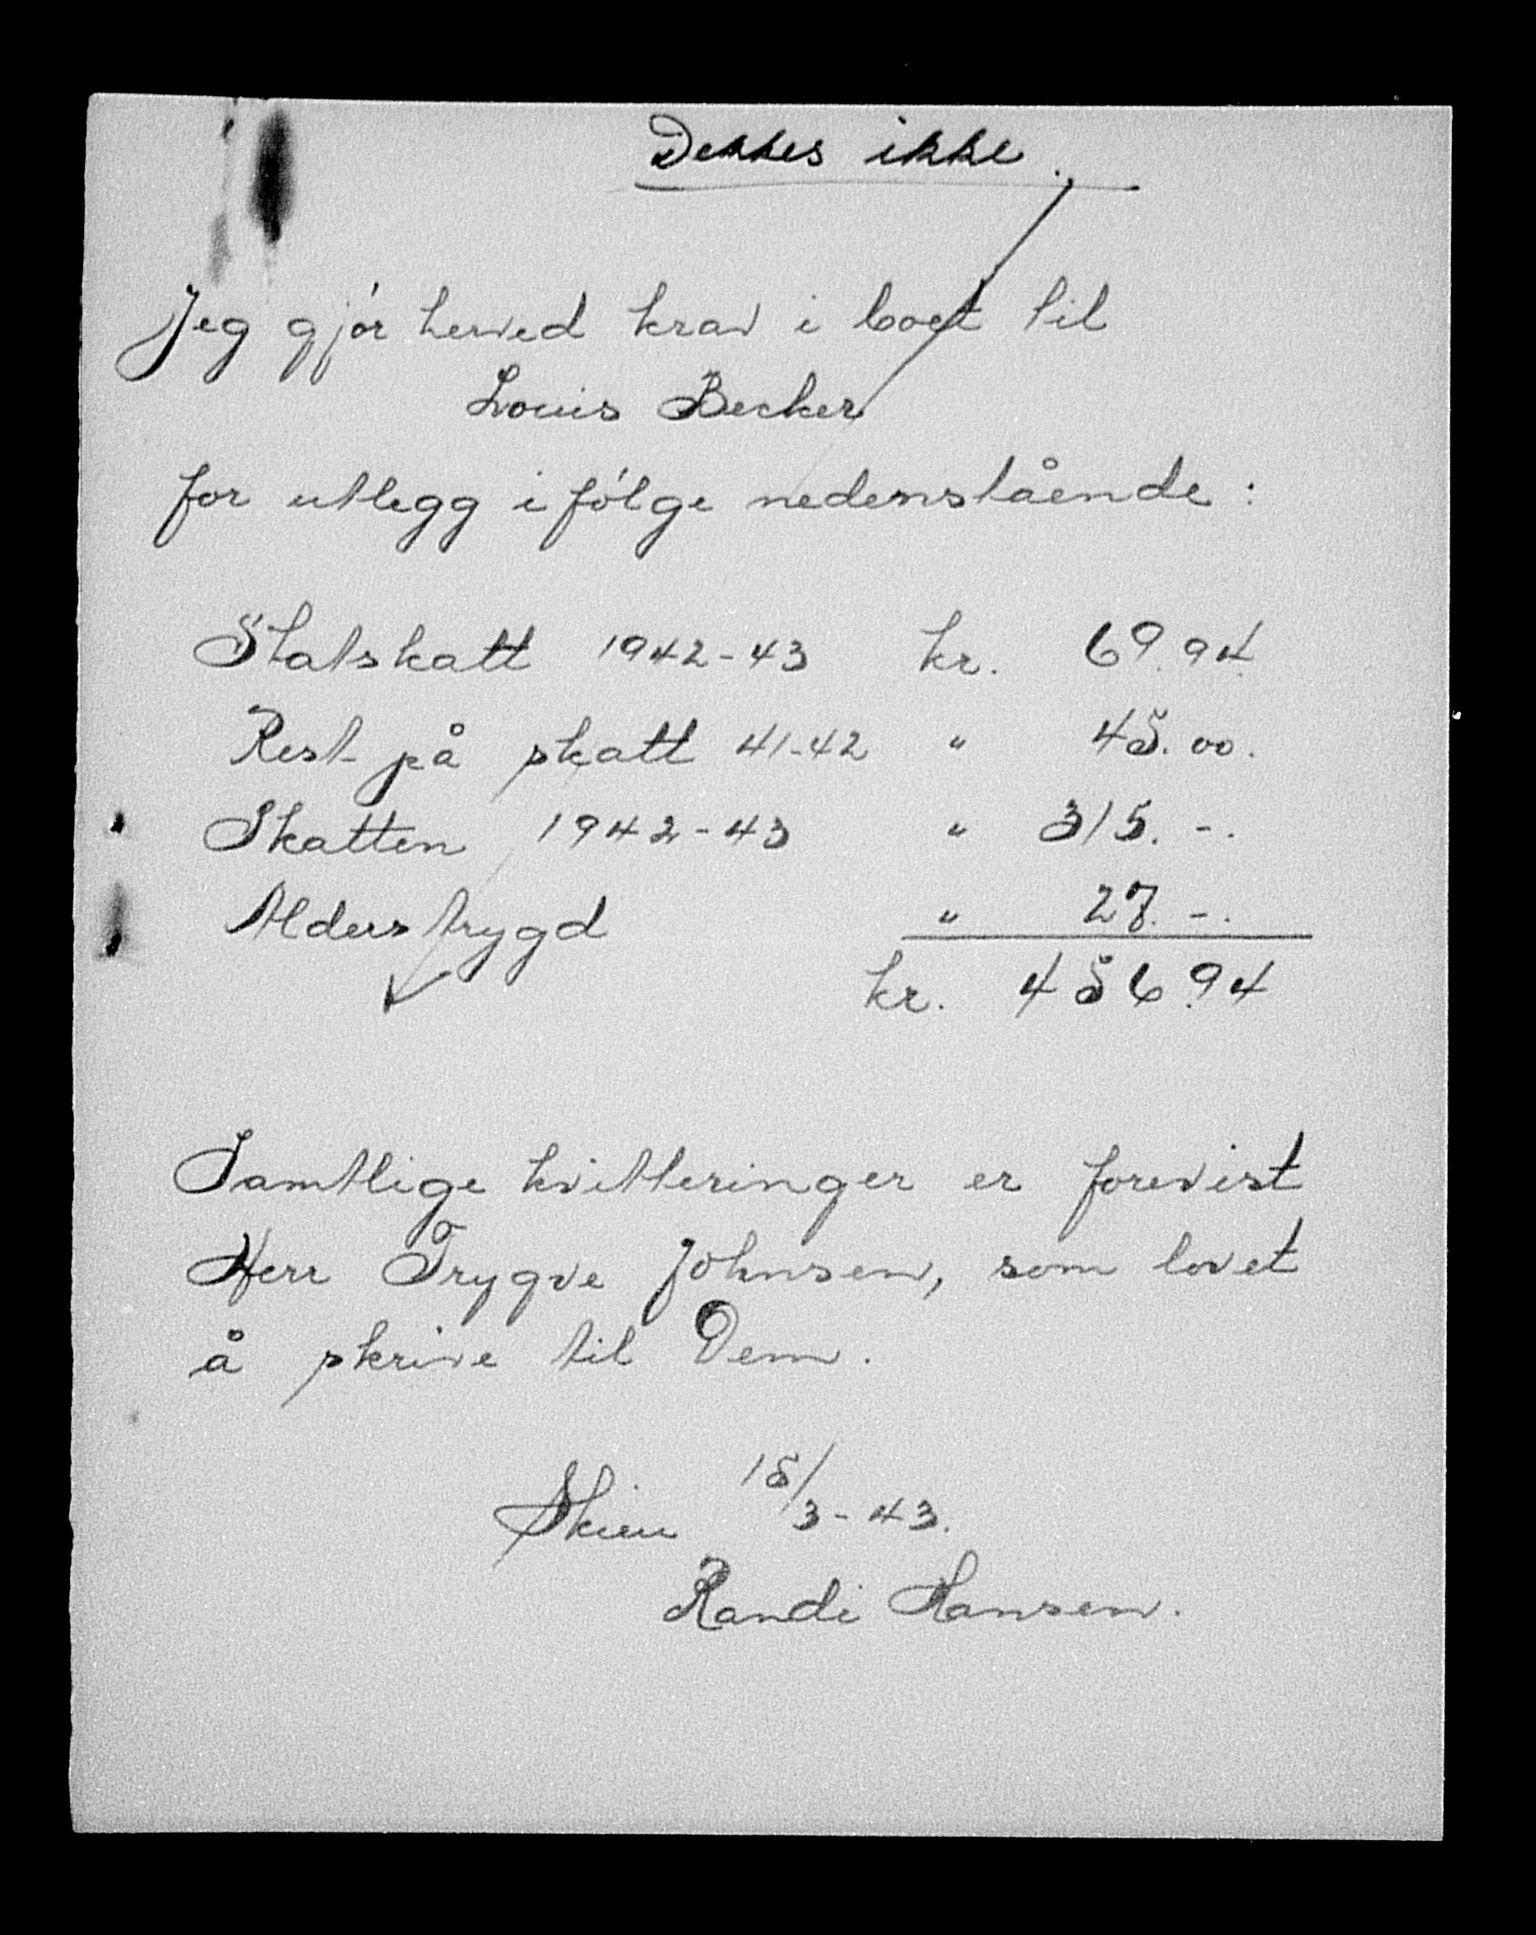 Dekkes ikke.
Jeg gjør herved krav i boet til
Louis Becker
for utlegg ifølge nedenstående:
Statskatt 1942-43 kr. 69.94
Rest på skatt 41-42 " 45.00.
Skatten 1942-43 " 315.-.
Alderstrygd " 27.-.
kr. 456.94
Samtlige kvitteringer er forevist
Herr Trygve Johnsen, som lovet
å skrive til Dem.
Skien 15/3-43.
Randi Hansen.